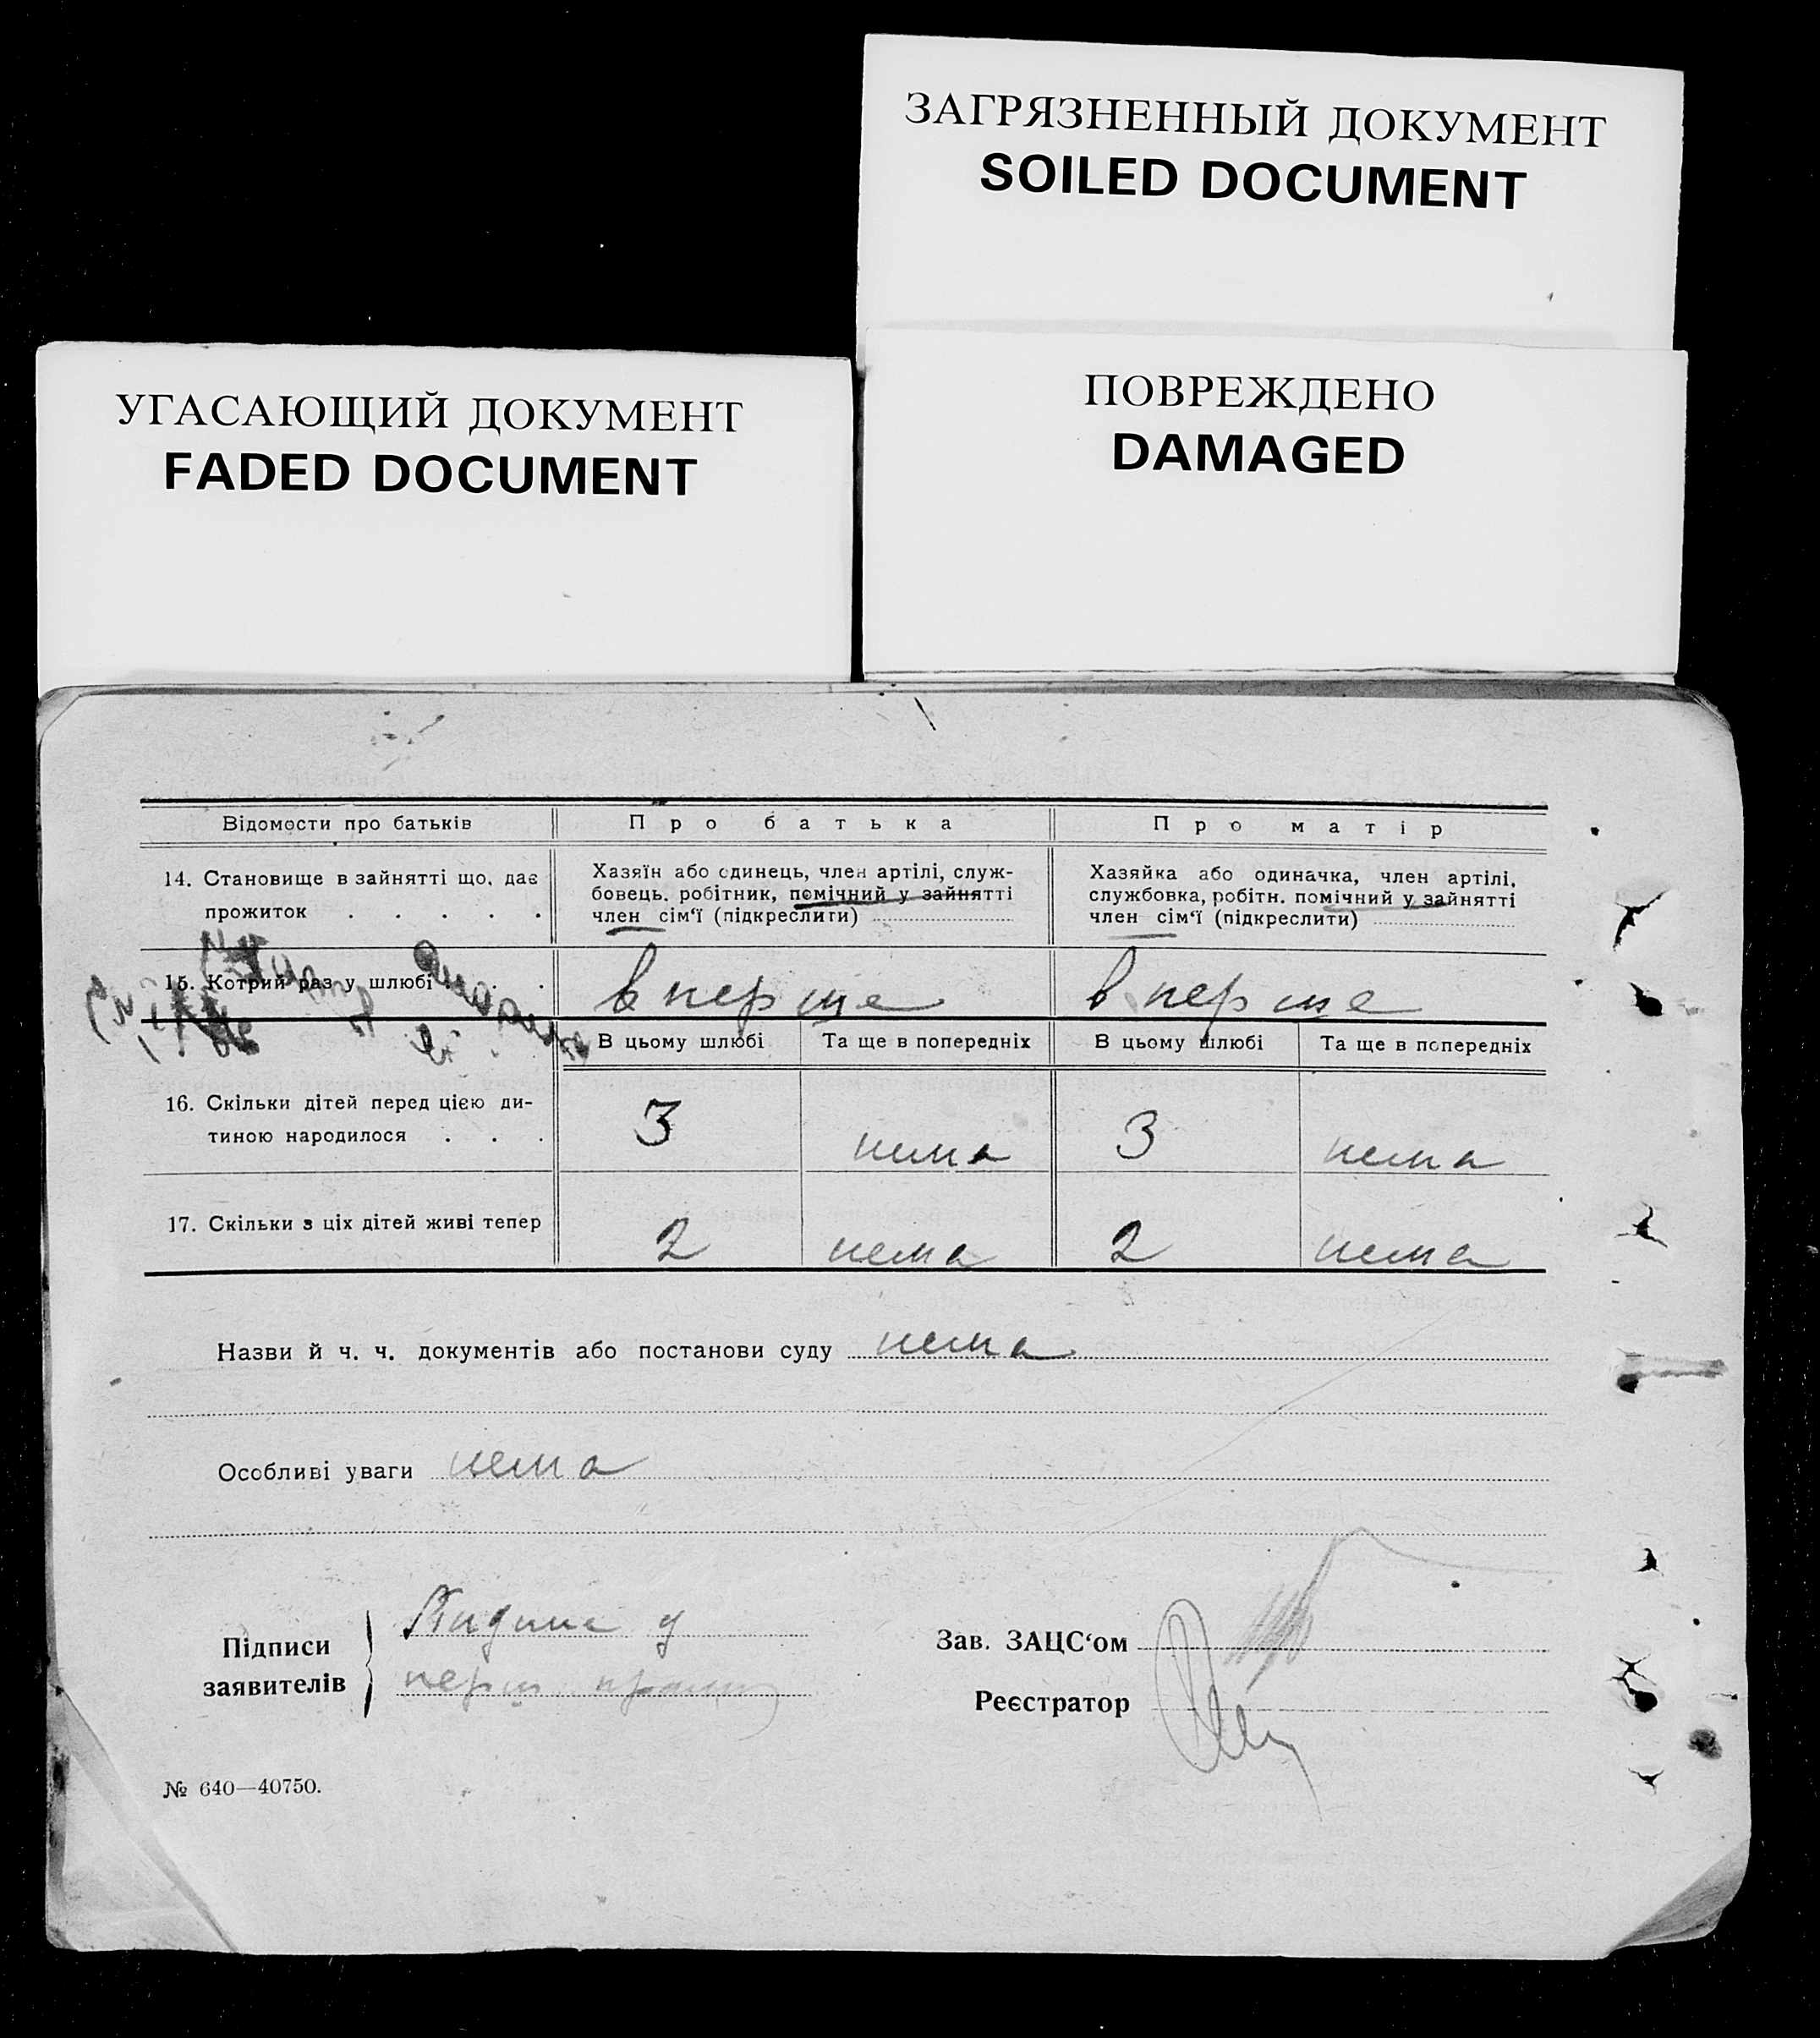 ЗАГРЯЗНЕННЫЙ ДОКУМЕНТ
SOILED DOCUMENT
УГАСАЮЩИЙ ДОКУМЕНТ
FADED DOCUMENT
ПОВРЕЖДЕНО
DAMAGED
Відомости про батьків Про батька Про матір
14. Становище в зайнятті що, дає
прожиток . . . . .
Хазяїн або одинець, член артілі, служ-
бовець, робітник, помічний у зайнятті
член сім'ї (підкреслити)
Хазяйка або одиначка, член артілі,
службовка, робітн. помічний у зайнятті
член сім'ї (підкреслити)
15. Котрий раз у шлюбі . . вперше вперше
В цьому шлюбі Та ще в попередніх В цьому шлюбі Та ще в попередніх
16. Скільки дітей перед цією ди-
тиною народилося . . . 3 нема 3 нема
17. Скільки з ціх дітей живі тепер 2 нема 2 нема
Назви й ч. ч. документів або постанови суду нема
Особливі уваги нема
Підписи
заявителів
Зав. ЗАЦС'ом
Реєстратор
№ 640—40750.